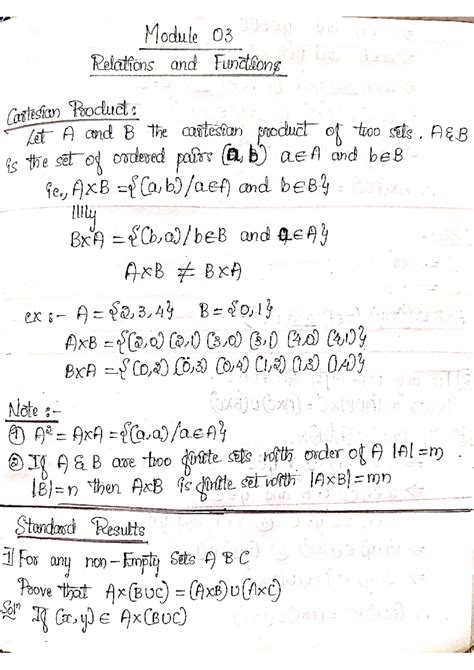 Module 03
Relations and Functions
Cartesian Product:
Let A and B the cartesian product of two sets. A & B
is the set of ordered pairs (a, b) a∈A and b∈B
ie., A×B = {(a,b)/a∈A and b∈B}
lllly
B×A = {(b,a)/b∈B and a∈A}
A×B ≠ B×A
ex :- A = {2,3,4} B = {0,1}
A×B = {(2,0) (2,1) (3,0) (3,1) (4,0) (4,1)}
B×A = {(0,2) (0,3) (0,4) (1,2) (1,3) (1,4)}
Note :-
① A² = A×A = {(a,a)/a∈A}
② If A & B are two finite sets with order of A |A|=m .
|B|=n then A×B is finite set with |A×B|=mn
Standard Results
1] For any non-Empty Sets A B C
Prove that A×(B∪C) = (A×B)∪(A×C)
Solⁿ If (x,y) ∈ A×(B∪C)